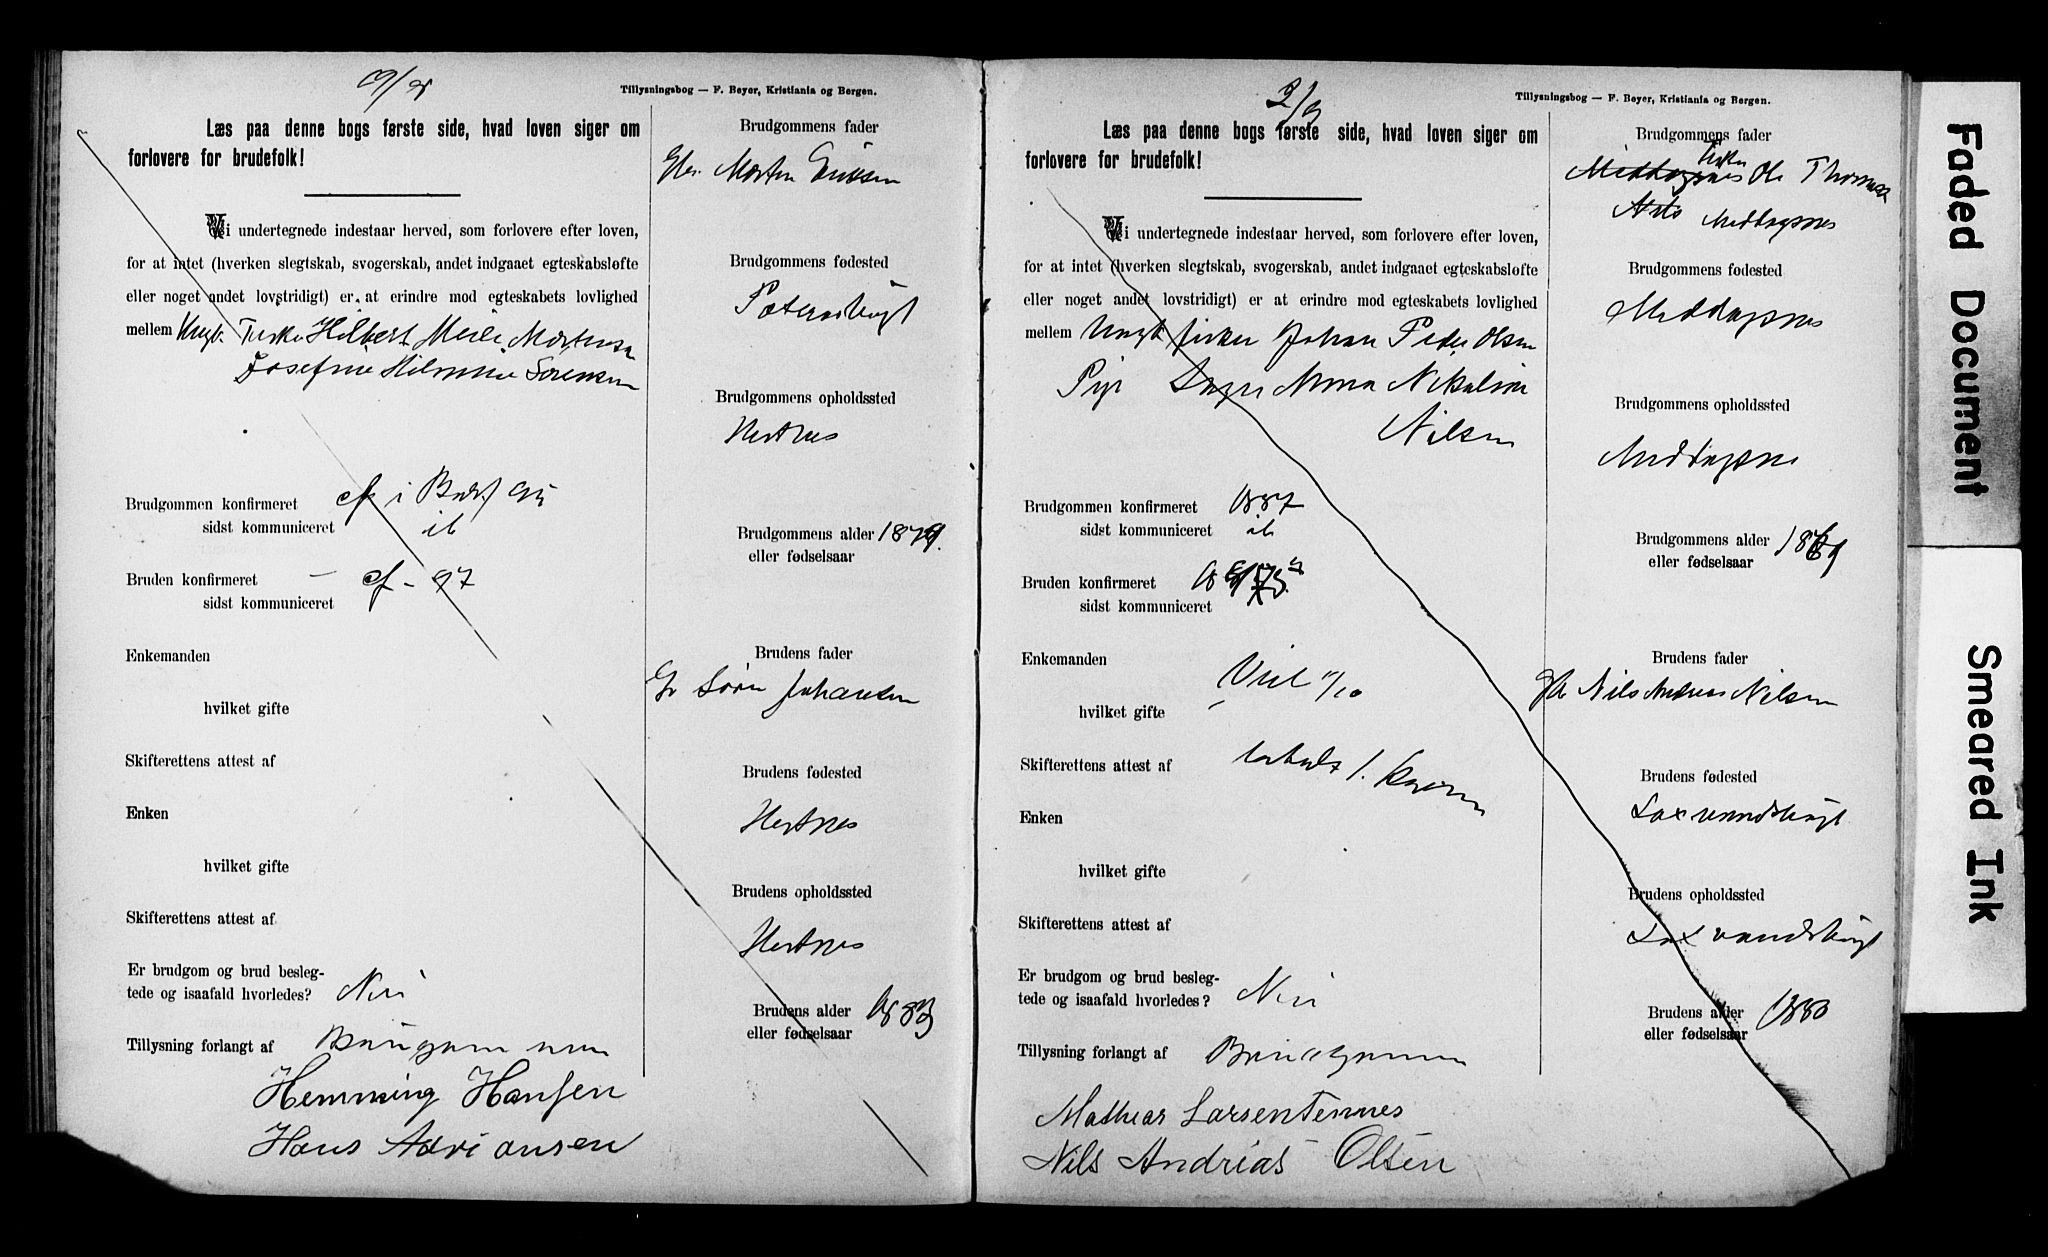 Tillysningsbog — F. Beyer, Kristiania og Bergen.
Læs paa denne bogs første side, hvad loven siger om
forlovere for brudefolk!
Vi undertegnede indestaar herved, som forlovere efter loven,
for at intet (hverken slegtskab, svogerskab, andet indgaaet egteskabsløfte
eller noget andet lovstridigt) er at erindre mod egteskabets lovlighed
mellem Ungk. Hilbert Meile Mortensen
Josefine Hilmine Sørensen
Brudgommen konfirmeret cf i
sidst kommuniceret ib
Bruden konfirmeret — cf - 97
sidst kommuniceret
Enkemanden
hvilket gifte
Skifterettens attest af
Enken
hvilket gifte
Skifterettens attest af
Er brudgom og brud besleg-
tede og isaafald hvorledes? Nei
Tillysning forlangt af Brudgommen
Hemming Hansen
Hans Adriansen
Brudgommens fader
Morten
Brudgommens fødested
Brudgommens opholdssted
Hestnes
Brudgommens alder 1879.
eller fødselsaar
Brudens fader
Søren Johansen
Brudens fødested
Hestnes
Brudens opholdssted
Hestnes
Brudens alder 1883
eller fødselsaar
2/9
Tillysningsbog — F. Beyer, Kristiania og Bergen.
Læs paa denne bogs første side, hvad loven siger om
forlovere for brudefolk!
Vi undertegnede indestaar herved, som forlovere efter loven,
for at intet (hverken slegtskab, svogerskab, andet indgaaet egteskabsløfte
eller noget andet lovstridigt) er at erindre mod egteskabets lovlighed
mellem Ungk fisker Johan Peder Olsen
Pige Anna Nikoline
Nilsen
Brudgommen konfirmeret 1887
sidst kommuniceret ib
Bruden konfirmeret
sidst kommuniceret
Enkemanden
Viet
hvilket gifte
Skifterettens attest af
Enken
hvilket gifte
Skifterettens attest af
Er brudgom og brud besleg-
tede og isaafald hvorledes? Nei
Tillysning forlangt af Brudgommen
Mathias Larsen Tennes
Nils Andrias Olsen
Brudgommens fader
Fisker
Meddagsnes Ole Thomas
Nils Meddagsnes
Brudgommens fødested
Meddagsnes
Brudgommens opholdssted
Meddagsnes
Brudgommens alder 1869
eller fødselsaar
Brudens fader
Nils Andreas Nilsen
Brudens fødested
Laxvandsbugt
Brudens opholdssted
Laxvandsbugt
Brudens alder 1880
eller fødselsaar
Faded Document
Smeared Ink